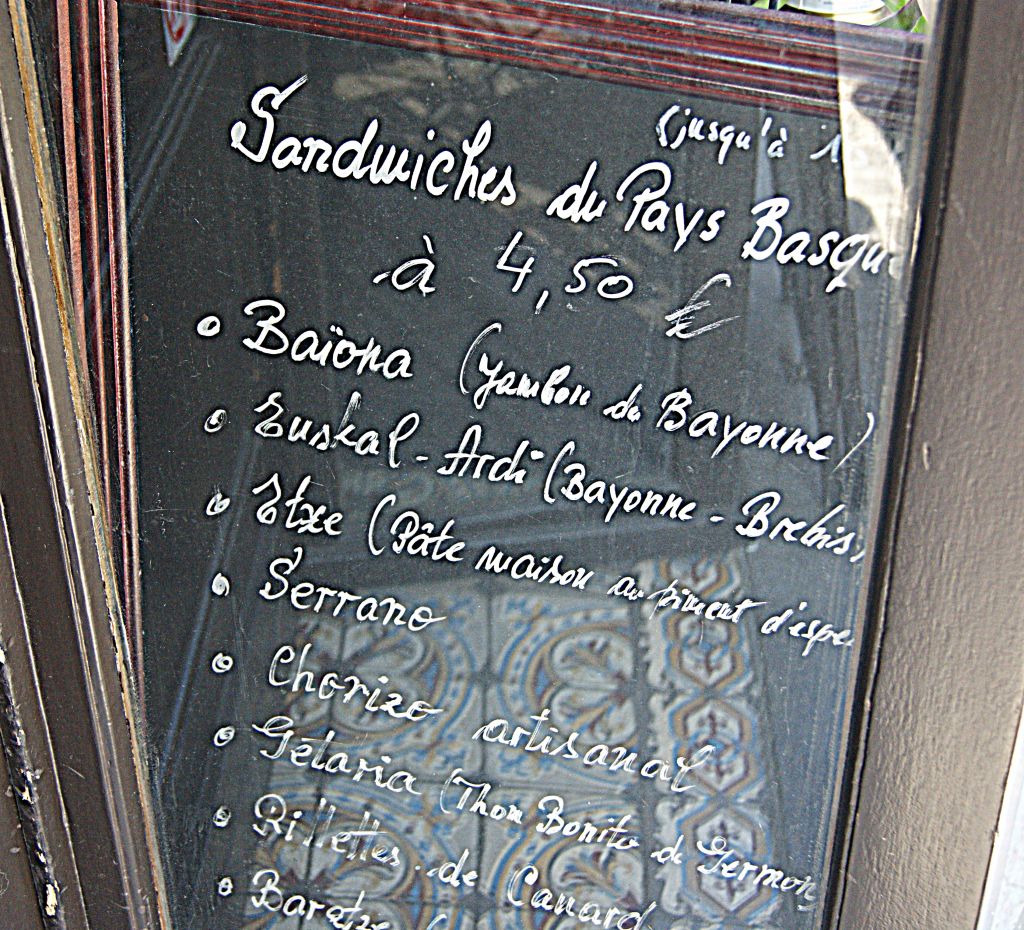 (jusqu'à 1
Sandwiches du Pays Basque
à 4,50 €
• Baïona (Jambon de Bayonne)
• Euskal-Ardi (Bayonne-Brebis)
• Etxe (Pâte maison au piment d'espe
• Serrano
• Chorizo artisanal
• Getaria (Thon Bonito de Germon
• Rillettes de Canard
• Baratxe (